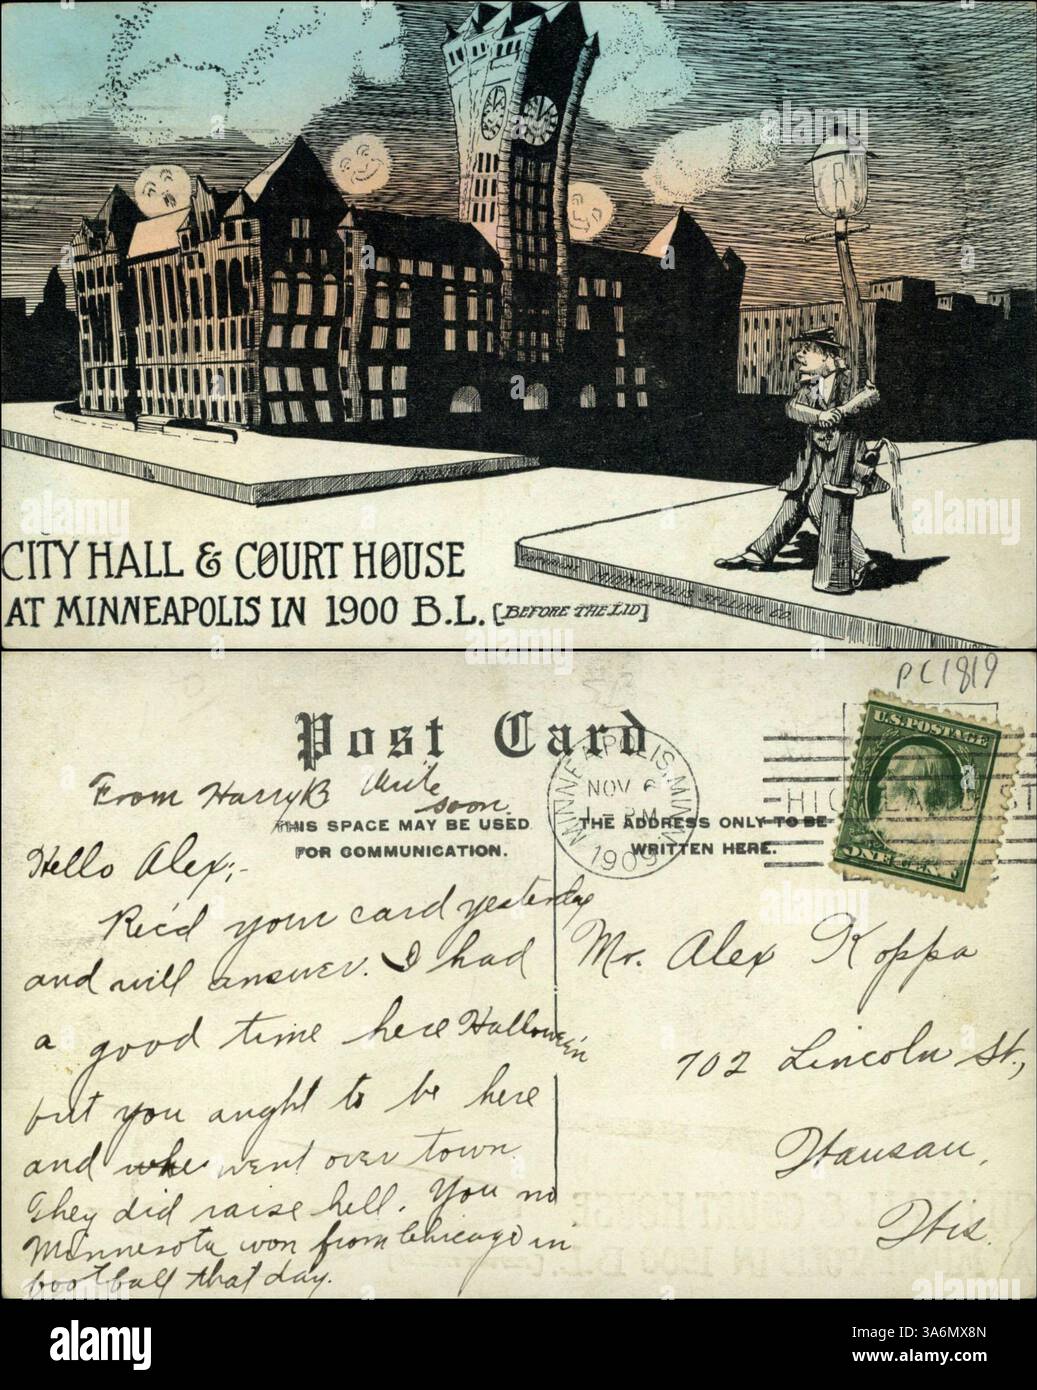 CITY HALL & COURT HOUSE
AT MINNEAPOLIS IN 1900 B.L. [BEFORE THE LID]
COPYRIGHT MINNEAPOLIS SELLING CO.
PC1819
Post Card
U.S. POSTAGE
ONE CENT
MINNEAPOLIS, MINN.
NOV 6
1 - PM
1909
From Harry B Write
soon.
THIS SPACE MAY BE USED
FOR COMMUNICATION.
THE ADDRESS ONLY TO BE
WRITTEN HERE.
Hello Alex;-
Rec'd your card yesterday
and will answer. I had
a good time here Hallowe'en
but you aught to be here
and went over town
They did raise hell. You no
Minnesota won from Chicago in
football that day.
Mr. Alex Koppa
702 Lincoln St.,
Wausau,
Wis.
alamy
Image ID: 3A6MX8N
www.alamy.com